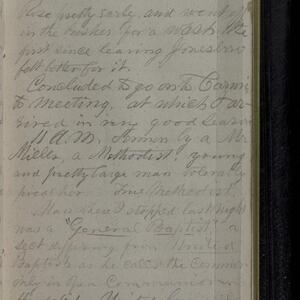 Rose pretty early, and went off
in the rushes for a wash the
first since leaving Jonesboro
felt better for it.
Concluded to go on to Carmi
to meeting, at which I ar-
rived in very good season
11 A.M. Sermon by a Mr
Mills, a Methodist: young
and pretty large man tolerably
preacher. True Methodist.
Man where I stopped last night
was a "General Baptist" a
sect differing from United
Baptists as he calls the common
only in Open Communion and